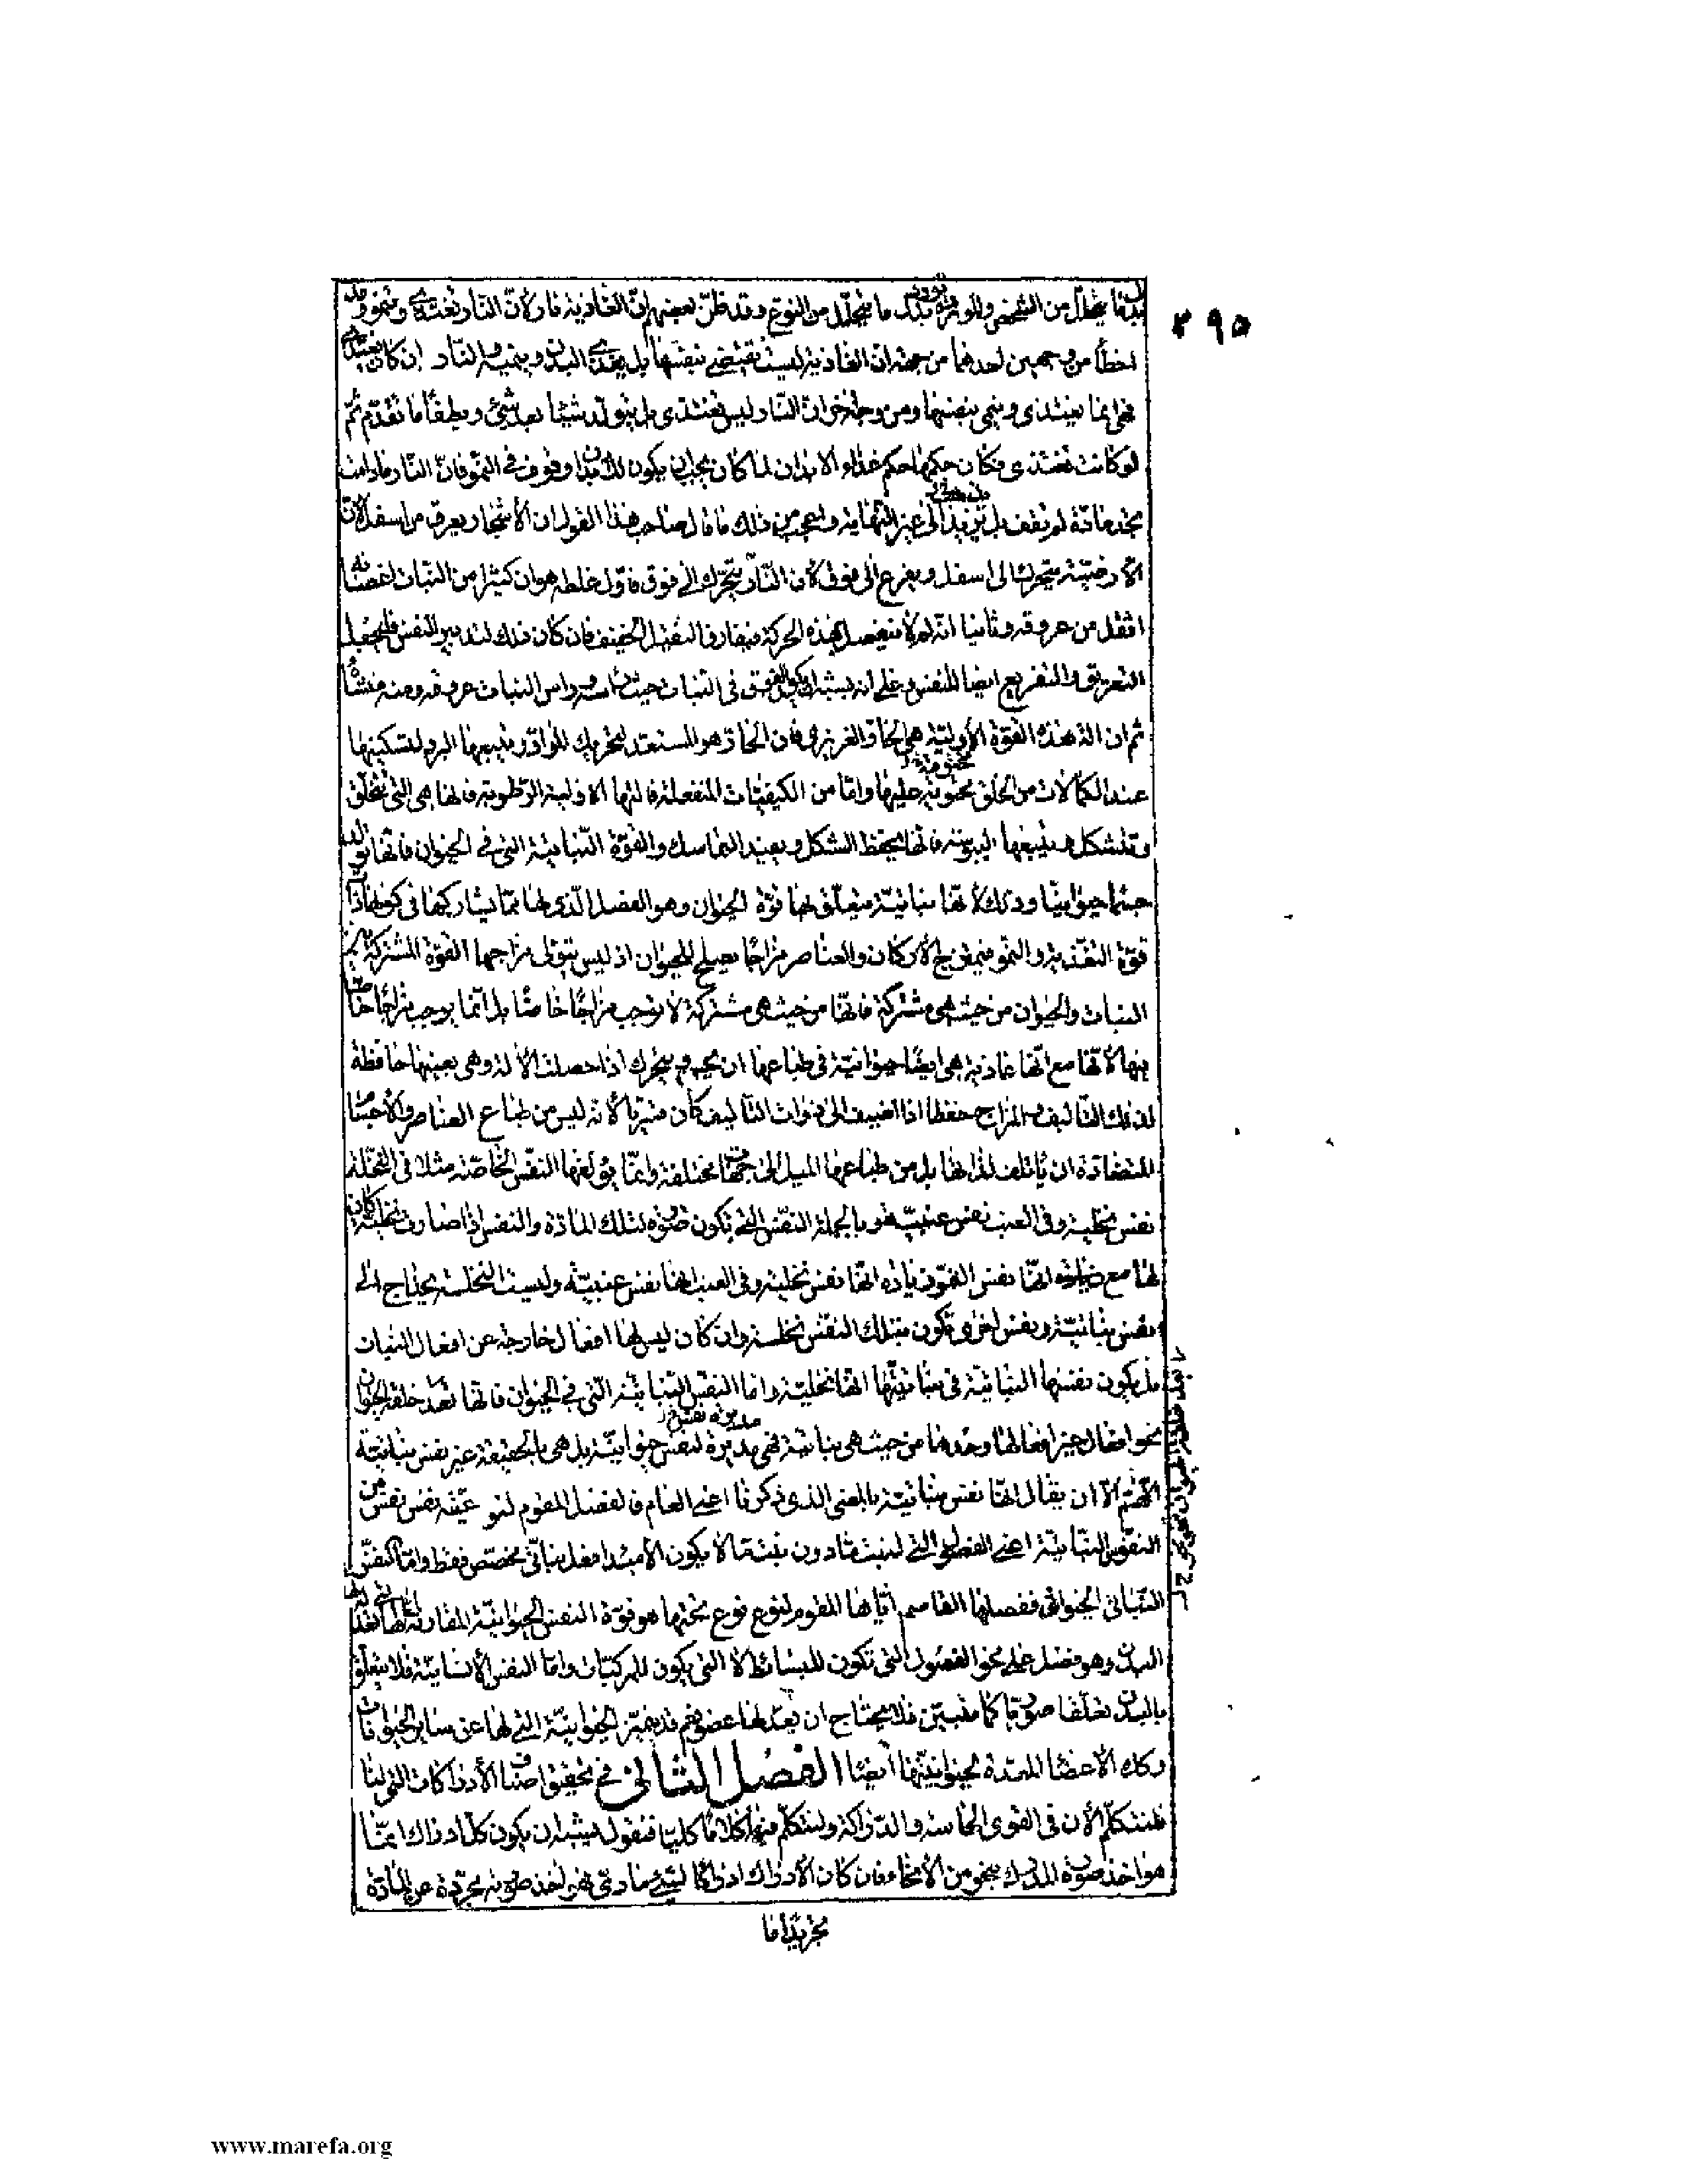 ٢٩٥
بدل ما يتحلل من الشخص والمولدة تورد بدل ما يتحلل من النوع وقد ظن بعضهم ان الغاذية نار لأن النار تغتذى وتنمو وقد
اخطأ من وجهين احدهما من جهة ان الغاذية ليست تغتذى بنفسها بل تغذى البدن وينميه والنار ان كان تغتذى
فهى انما تغتذى وتنمى بنفسها ومن وجه اخر ان النار ليس تغتذى بل يتولد شيئا بعد شيئ ويطفأ ما تقدم ثم
لو كانت تغتذى فكان حكمها حكم غذاء الابدان لما كان يجب ان يكون للابدان وقوف فى النمو فان النار ما دامت
تجد مادة لم تقف بل تزيد الى غير النهاية واعجب من ذلك ما قال صاحب هذا القول ان الأشجار يعرق من اسفل لان
الأرضية يتحرك الى اسفل ويفرع الى فوق لأن النار يتحرك الى فوق فاول غلطه هو ان كثيرا من النبات اغصانه
اثقل من عروقه وثانيا انه لم لا ينفصل بهذه الحركة فيفارق الثقيل الخفيف فان كان ذلك لتدبير النفس فليجعل
التعريق والتفريع ايضا للنفس وعلى انه يشبه ان يكون الفوق فى النبات حيث رأسه ورأس النبات عروقه ومنه منشأه
ثم ان آلة هذه القوة الأولية هى الحار الغريزى فان الحار هو المستعد لتحريك المواد ويتبعها البرد لتسكينها
عند الكمالات من الخلق محتوية عليها واما من الكيفيات المنفعلة فآلتها الاولية الرطوبة فانها هى التى تتخلق
وتتشكل ويتبعها اليبوسة فانها تحفظ الشكل ويفيد التماسك والقوة النباتية التى فى الحيوان فانها تولد
جسما حيوانيا وذلك لأنها نباتية يتعلق بها قوة الحيوان وهو الفصل الذى لها مما يشاركها فى كونها ذا
قوة التغذية والنمو فيمزج الأركان والعناصر مزاجا يصلح للحيوان اذ ليس يتولى مزاجها القوة المشتركة بين
النبات والحيوان من حيث هى مشتركة فانها من حيث هى مشتركة لا توجب مزاجا خاصا بل انما يوجب مزاجا خاصا
فيها لأنها مع انها غاذية هى ايضا حيوانية فى طباعها ان يحس ويتحرك اذا حصلت الألة وهى بعينها حافظة
لذلك التأليف والمزاج حفظا اذا اضيف الى ذوات التأليف كان قسريا لأنه ليس من طباع العناصر والأجسام
المتضادة ان يأتلف لذاتها بل من طباعها الميل الى جهات مختلفة وانما يؤلفها النفس الخاصة مثلا فى النخلة
نفس نخلية وفى العنب نفس عنبية وبالجملة النفس التى تكون صورة لتلك المادة والنفس اذا صارت نخلية كان
لها مع انها نفس النمو زيادة انها نفس نخلية وفى العنب انها نفس عنبية وليست النخلة يحتاج الى
نفس نباتية ونفس اخرى تكون بتلك النفس نخلة وان كان ليس لها افعال خارجة عن افعال النبات
بل يكون نفسها النباتية فى نباتيتها انها نخلية واما النفس النباتية التى فى الحيوان فانها تعد خلقة الحيوان
نحو افعال غير افعالها وحدها من حيث هى نباتية فهى مدبرة لنفس حيوانية بل هى بالحقيقة غير نفس نباتية
اللهم الا ان يقال انها نفس نباتية بالمعنى الذى ذكرنا اعنى العام فالفصل المقوم لنوعية نفس نفس من
النفوس النباتية اعنى الفصل التى لنبت ما دون نبت ما لا يكون الا مبدأ فعل نباتى مخصص فقط واما النفس
النباتى الحيوانى ففصلها القاسم اياها المقوم لنوع نوع تحتها هو قوة النفس الحيوانية المقارنة لها التى لها تعد
البدن وهو فصل على نحو الفصول التى تكون للبسائط لا التى يكون للمركبات واما النفس الأنسانية فلا يتعلق
بالبدن تعلقا صوريا كما نتبين فلا يحتاج ان تعد لها عضو نعم قد يتميز الحيوانية التى لها عن ساير الحيوانات
وكذلك الأعضا المعدة لحيوانيتها أيضا الفصل الثانى فى تحقيق اصناف الأدراكات التى لنا
فلنتكلم الأن فى القوى الحاسة والدراكة ولنتكلم فيها كلاما كليا فنقول يشبه ان يكون كل ادراك انما
هو اخذ صورة المدرك بنحو من الأنحاء فان كان الأدراك ادراكا لشيئ مادى فهو اخذ صورته مجردة عن المادة
تجريدا ما
www.marefa.org